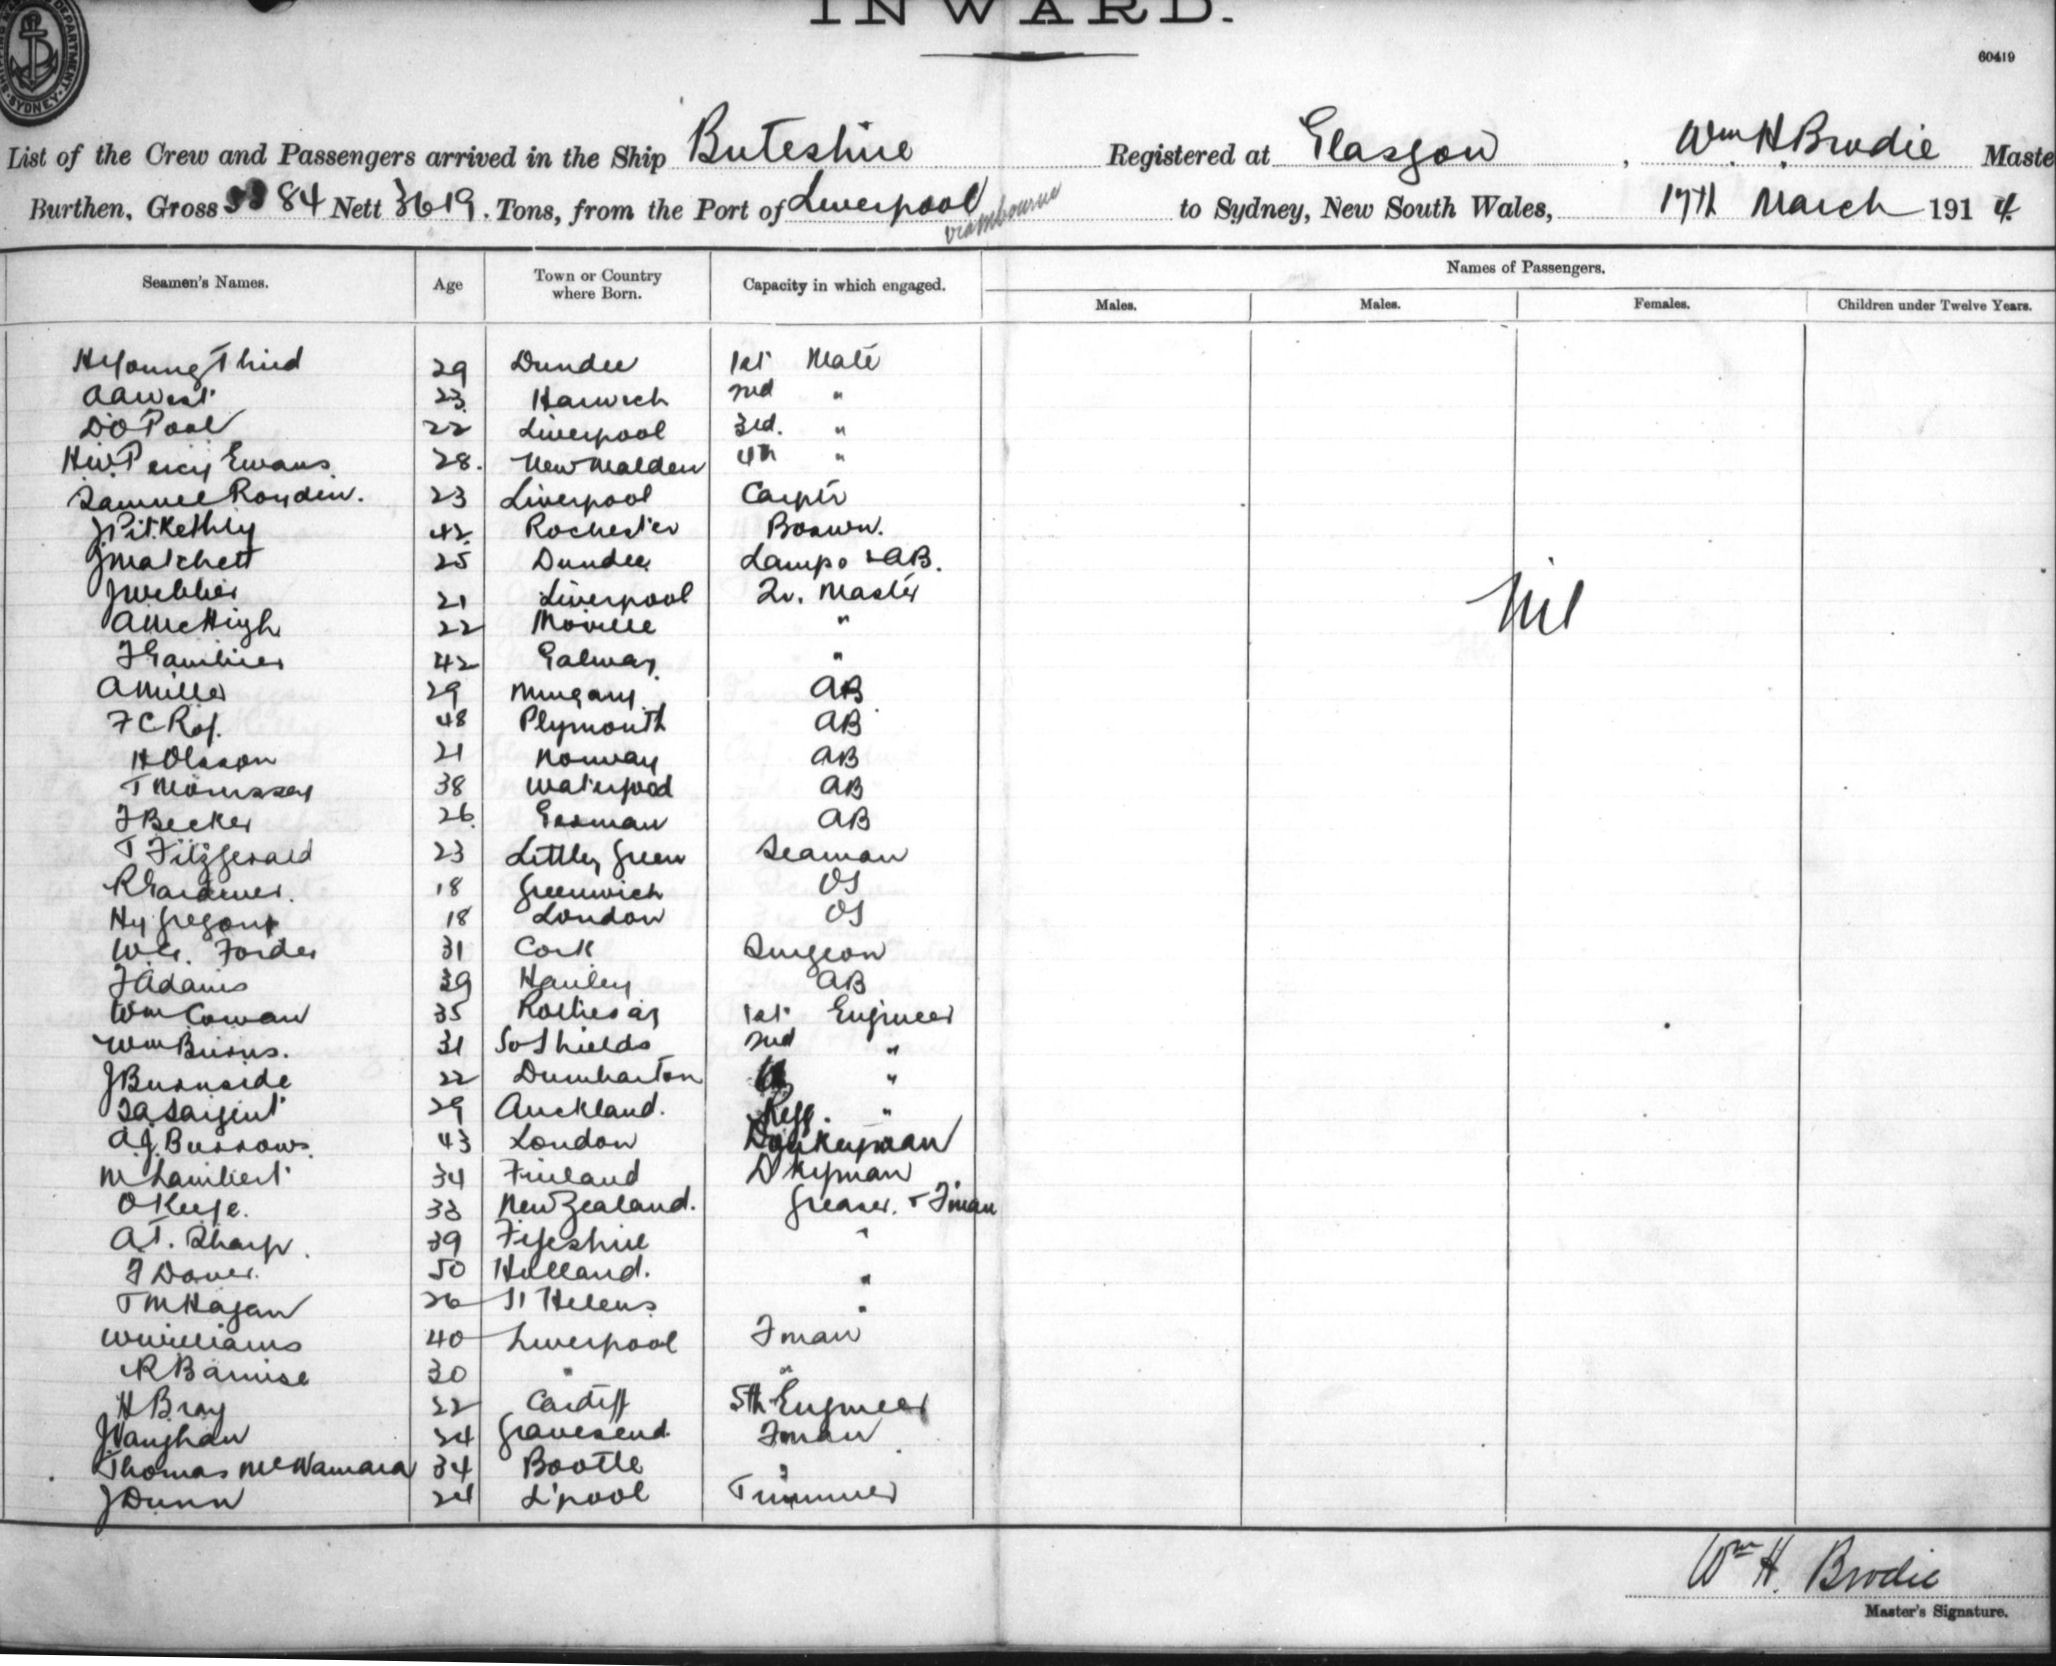 INWARD.
60419
SYDNEY
List of the Crew and Passengers arrived in the Ship Buteshire Registered at Glasgow, Wm H Brodie Maste
Burthen, Gross 5584 Nett 3619. Tons, from the Port of Liverpool via Mbourne to Sydney, New South Wales, 17th March 1914
Names of Passengers.
Seamen's Names. Age Town or Country where Born. Capacity in which engaged. Males. Males. Females. Children under Twelve Years.
H Young Third 29 Dundee 1st Mate
A A West 23 Harwich 2nd "
D O Pool 22 Liverpool 3rd. "
H.W. Percy Evans 28. New Malden 4th "
Samuel Royden. 23 Liverpool Carptr
J Pitkethly 42 Rochester Boswn.
J Matchett 25 Dundee Lamps & AB.
J Webber 21 Liverpool Qr. Master
A McHigh 22 Moville "
Nil
42 Galway "
A Miller 29 AB
F C 48 Plymouth AB
H Olsson 21 Norway AB
T Morrissey 38 AB
F Becker 26 German AB
T Fitzgerald 23 Littley Green Seaman
R Gardiner. 18 Greenwich OS
Hy Gregory 18 London OS
W.G. Forder 31 Cork Surgeon
F Adams 39 Hanley AB
Wm Cowan 35 Rothesay 1st Engineer
Wm Burns. 31 So Shields 2nd "
J Burnside 22 Dumbarton "
Sargent 29 Auckland. Refg. "
A.J. Burrows. 43 London Donkeyman
M Lambert 34 Finland Dkyman
O Keefe. 33 New Zealand. Greaser. & Fman
A.T. Sharp. 39 Fifeshire "
F Dover. 50 Holland. "
T McHagan 26 St Helens "
W Williams 40 Liverpool Fman
R Barnise 30 " "
H Bray 22 Cardiff 5th Engineer
J Vaughan 24 Gravesend Fman
Thomas McNamara 34 Bootle "
J Dunn 24 L'pool Trimmer
Wm H. Brodie
Master's Signature.